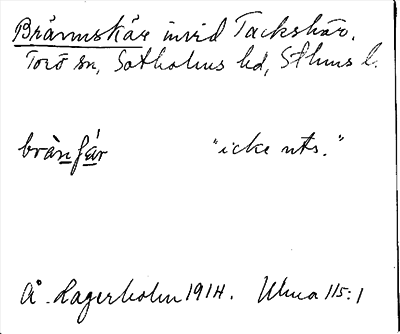 Brännskär invid Tackskär.
Torö sn, Sotholms hd, Sthms l.
brànfár "icke uts."
Å. Hagerholm 1914. Ulma 115:1